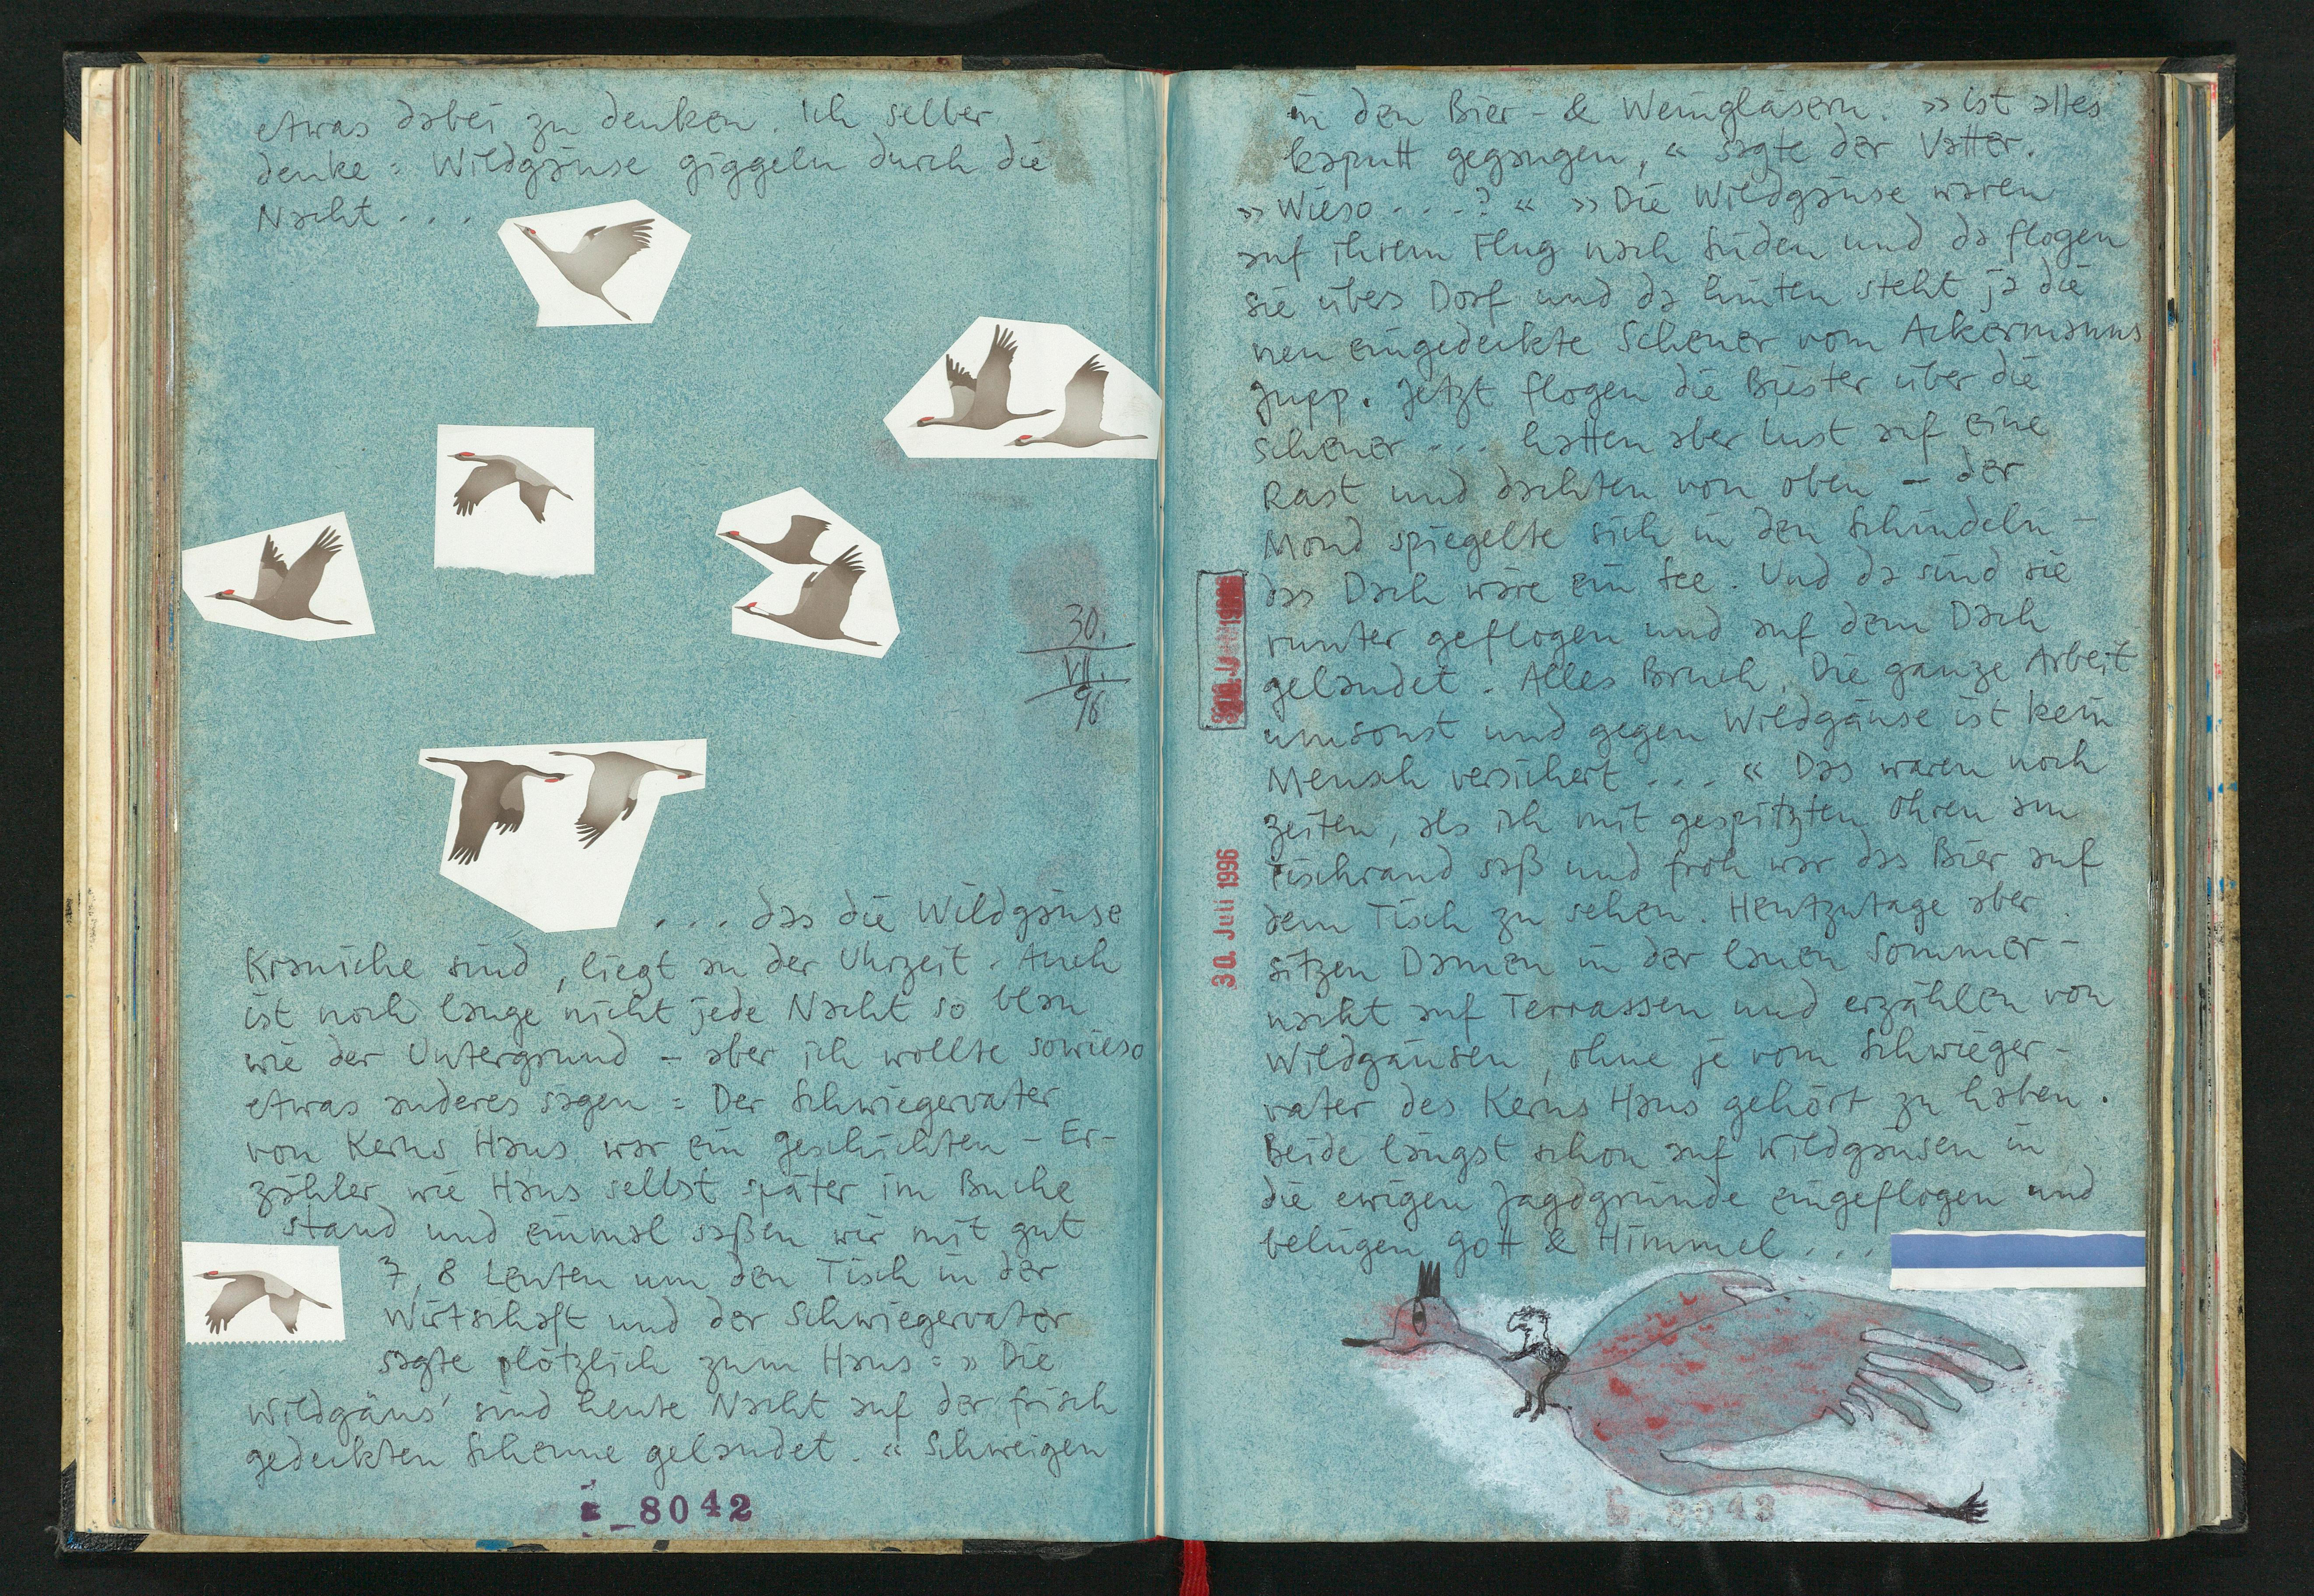 etwas dabei zu denken. Ich selber
denke = Wildgänse giggeln durch die
Nacht . . .
30.
VII.
96
. . . das die Wildgänse
Kraniche sind, liegt an der Uhrzeit. Auch
ist noch lange nicht jede Nacht so blau
wie der Untergrund – aber ich wollte sowieso
etwas anderes sagen = Der Schwiegervater
von Kerns Hans war ein Geschichten-Er-
zähler wie Hans selbst später im Buche
stand und einmal saßen wir mit gut
7, 8 Leuten um den Tisch in der
Wirtschaft und der Schwiegervater
sagte plötzlich zum Hans = » Die
Wildgäns' sind heute Nacht auf der frisch
gedeckten Scheune gelandet. « Schweigen
8042
in den Bier- & Weingläsern. » ist alles
kaputt gegangen, « sagte der Vatter.
» Wieso . . . ? « » Die Wildgänse waren
auf ihrem Flug nach Süden und da flogen
sie übers Dorf und da hinten steht ja die
neu eingedeckte Scheuer vom Ackermanns
Jupp. Jetzt flogen die Biester über die
Scheuer . . . hatten aber Lust auf eine
Rast und dachten von oben – der
Mond spiegelte sich in den Schindeln –
das Dach wäre ein See. Und da sind sie
runter geflogen und auf dem Dach
gelandet. Alles Bruch. Die ganze Arbeit
umsonst und gegen Wildgänse ist kein
Mensch versichert . . . « Das waren noch
Zeiten, als ich mit gespitzten Ohren am
Tischrand saß und froh war das Bier auf
dem Tisch zu sehen. Heutzutage aber
sitzen Damen in der lauen Sommer-
nacht auf Terrassen und erzählen von
Wildgänsen, ohne je vom Schwieger-
vater des Kerns Hans gehört zu haben.
Beide längst schon auf Wildgänsen in
die ewigen Jagdgründe eingeflogen und
belügen Gott & Himmel . . .
30. Juli 1996
8043